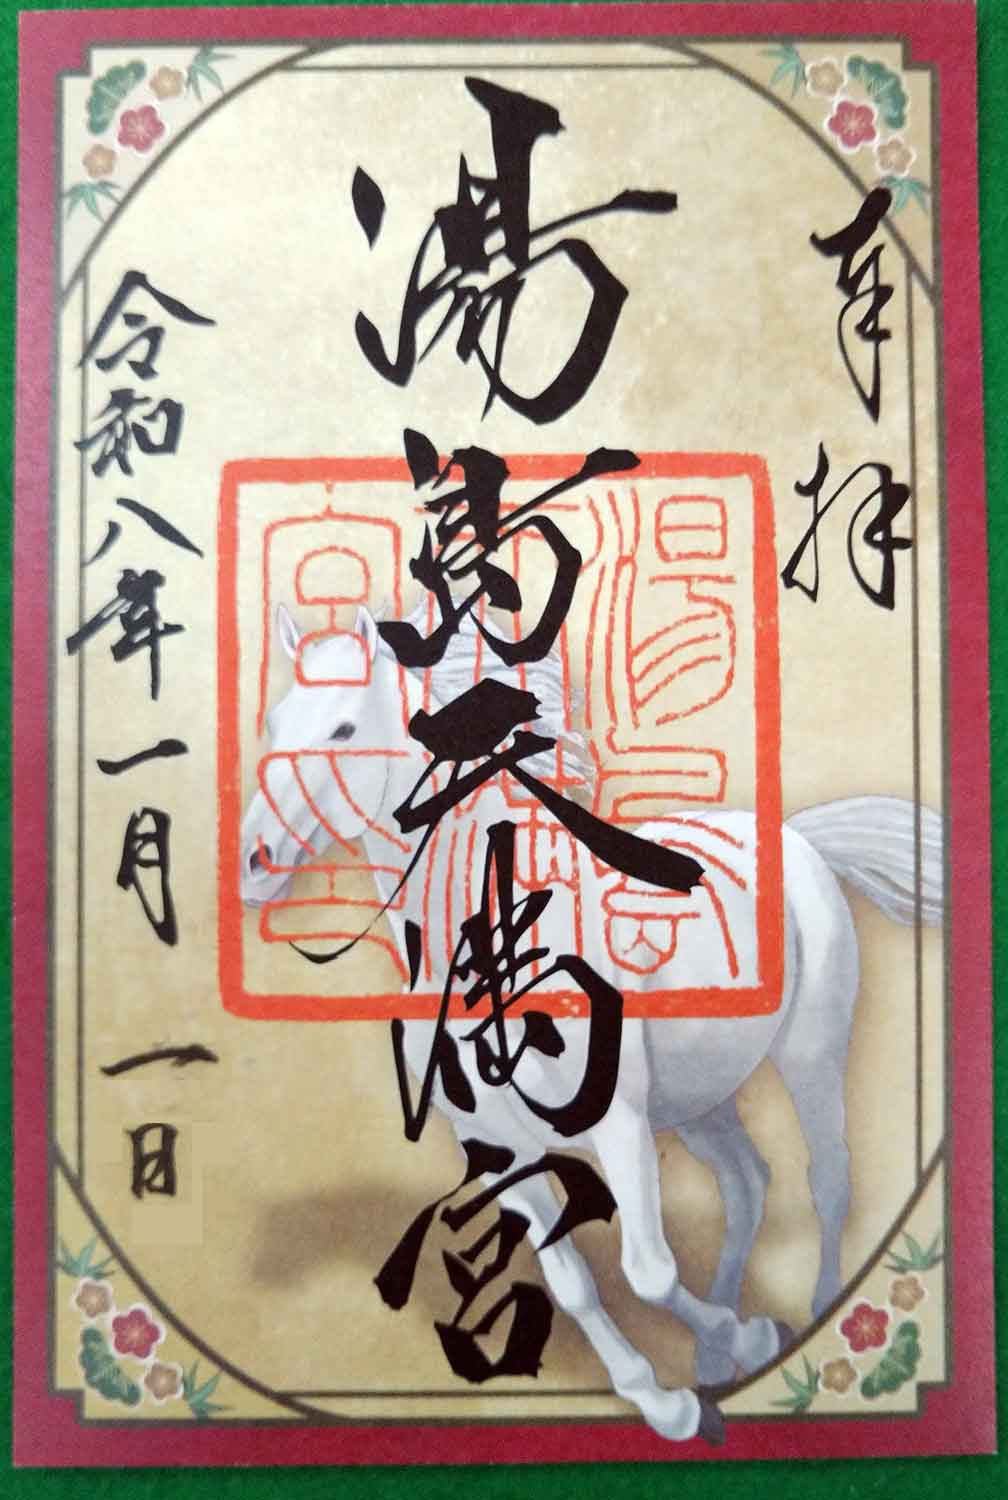 奉拝
湯島天満宮
令和八年一月一日